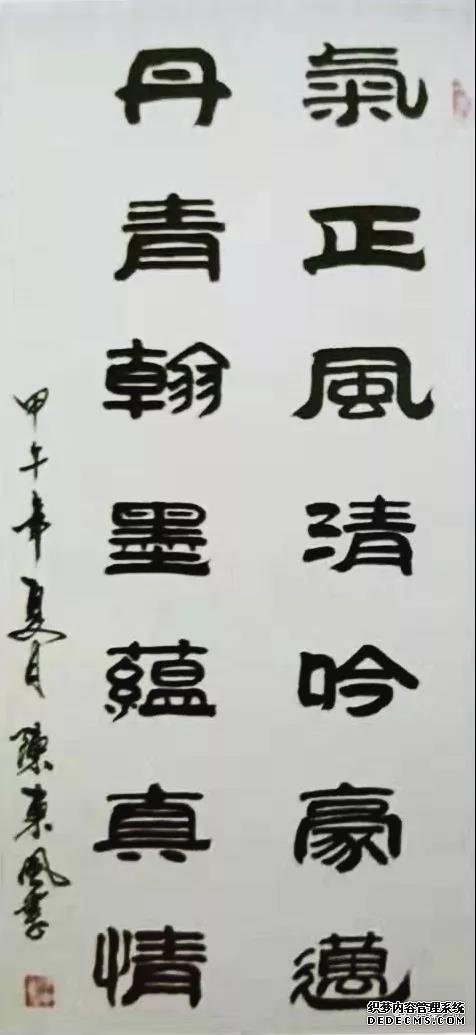 氣正風清吟豪邁
丹青翰墨蘊真情
甲午年夏月陳東風書
织梦内容管理系统
DEDECMS.COM